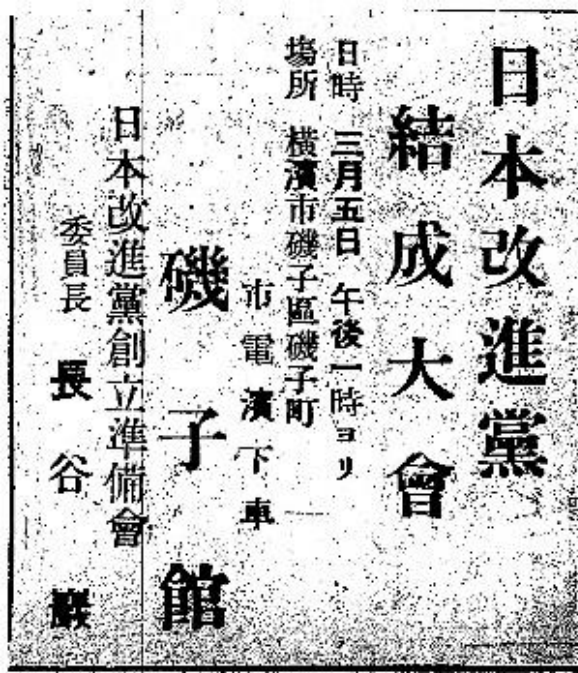 日本改進黨
結成大會
日時 三月五日 午後一時ヨリ
場所 橫濱市磯子區磯子町
市電濱下車
磯子館
日本改進黨創立準備會
委員長 長谷